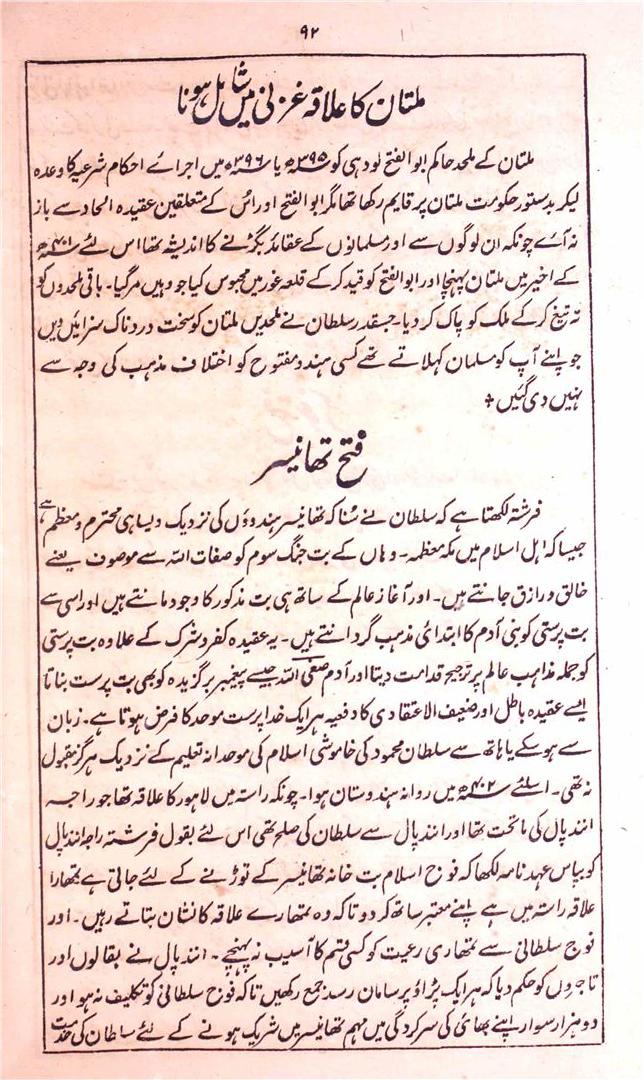 ۹۲
ملتان کا علاقہ غزنی میں شامل ہونا
ملتان کے ملحد حاکم ابوالفتح لودہی کو ۳۹۵ھ یا ۳۹۶ھ میں اجرائے احکام شرعیہ کا وعدہ
لیکر بدستور حکومت ملتان پر قایم رکھا تھا مگر ابوالفتح اور اُس کے متعلقین عقیدہ الحاد سے باز
نہ آئے چونکہ ان لوگوں سے اور مسلمانوں کے عقائد بگڑنے کا اندیشہ تھا اس لئے ۴۰۱ھ
کے اخیر میں ملتان پہنچا اور ابوالفتح کو قید کر کے قلعہ غور میں محبوس کیا جو وہیں مر گیا۔ باقی ملحدوں کو
تہ تیغ کر کے ملک کو پاک کر دیا۔ جسقدر سلطان نے ملحدین ملتان کو سخت دردناک سزائیں دیں
جو اپنے آپ کو مسلمان کہلاتے تھے کسی ہندو مفتوح کو اختلاف مذہب کی وجہ سے
نہیں دی گئیں +
فتح تھانیسر
فرشتہ لکھتا ہے کہ سلطان نے سُنا کہ تھانیسر ہندوؤں کی نزدیک ویسا ہی محترم و معظم ہے
جیسا کہ اہل اسلام میں مکہ معظمہ۔ وہاں کے بت جنگ سوم کو صفات اللہ سے موصوف یعنے
خالق و رازق جانتے ہیں۔ اور آغاز عالم کے ساتھ ہی بت مذکور کا وجود مانتے ہیں اور اسی سے
بت پرستی کو بنی آدم کا ابتدائی مذہب گردانتے ہیں۔ یہ عقیدہ کفر و شرک کے علاوہ بت پرستی
کو جملہ مذاہب عالم پر ترجیح قدامت دیتا اور آدم صفی اللہ جیسے پیغمبر برگزیدہ کو بھی بت پرست بناتا
ایسے عقیدہ باطل اور ضعیف الاعتقادی کا دفعیہ ہر ایک خدا پرست موحد کا فرض ہوتا ہے۔ زبان
سے ہو سکے یا ہاتھ سے سلطان محمود کی خاموشی اسلام کی موحدانہ تعلیم کے نزدیک ہرگز مقبول
نہ تھی۔ اسلئے ۴۰۲ھ میں روانہ ہندوستان ہوا۔ چونکہ راستہ میں لاہور کا علاقہ تھا جو راجہ
انندپال کی ماتحت تھا اور انندپال سے سلطان کی صلح تھی اس لئے بقول فرشتہ راجہ انندپال
کو بپاس عہدنامہ لکھا کہ فوج اسلام بت خانہ تھانیسر کے توڑنے کے لئے جاتی ہے تمھارا
علاقہ راستہ میں ہے اپنے معتبر ساتھ کر دو تاکہ وہ تمھارے علاقہ کا نشان بتاتے رہیں۔ اور
فوج سلطانی سے تمھاری رعیت کو کسی قسم کا آسیب نہ پہنچے۔ انندپال نے بقالوں اور
تاجروں کو حکم دیا کہ ہر ایک پڑاؤ پر سامان رسد جمع رکھیں تاکہ فوج سلطانی کو تکلیف نہ ہو اور
دو ہزار سوار اپنے بھائی کی سرکردگی میں مہم تھانیسر میں شریک ہونے کے لئے سلطان کی خدمت